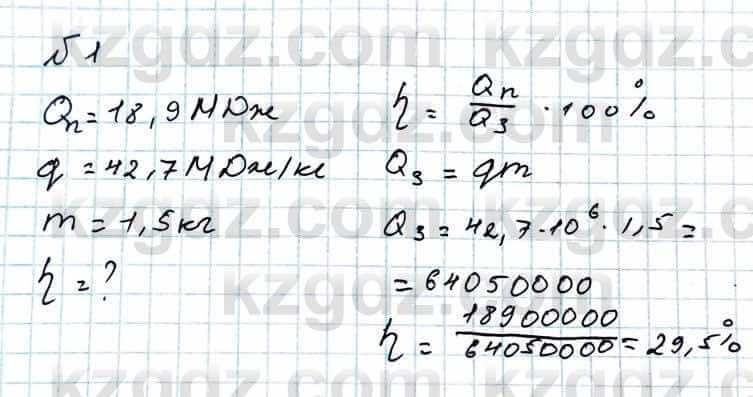 №1
Qп = 18,9 МДж
q = 42,7 МДж/кг
m = 1,5 кг
η = ?
η = Qп/Qз · 100%
Qз = qm
Qз = 42,7·10⁶·1,5 =
= 64050000
η = 18900000/64050000 = 29,5%
kzgdz.com